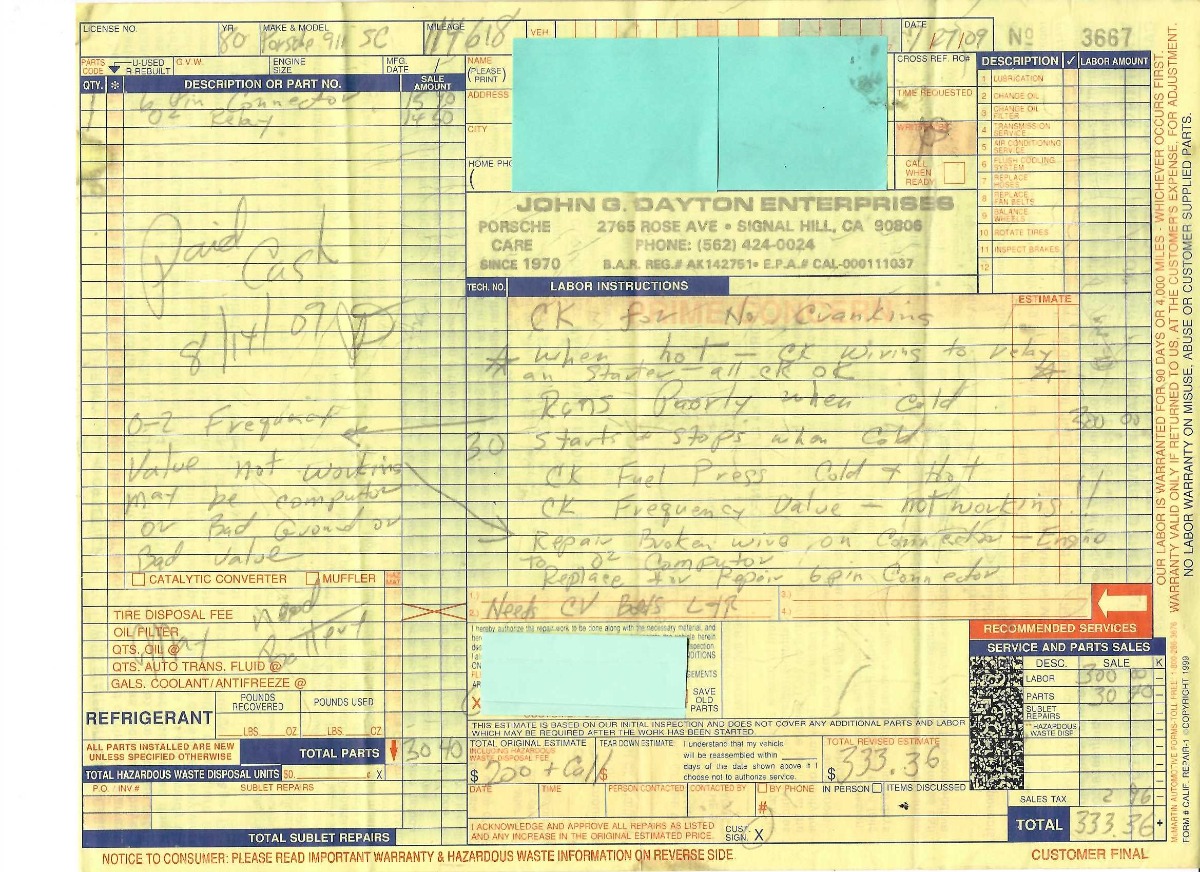 LICENSE NO. YR. 80 MAKE & MODEL Porsche 911 SC MILEAGE 117618 VEH. DATE Nº 3667
PARTS CODE U-USED R-REBUILT G.V.W. ENGINE SIZE MFG. DATE
QTY. * DESCRIPTION OR PART NO. SALE AMOUNT
1 6 pin Connector
1 O2 Relay
Paid
Cash
8/14/09
O-2 Frequency
Value not working
may be computor
or Bad Ground or
Bad value
CATALYTIC CONVERTER MUFFLER HAZ MAT
TIRE DISPOSAL FEE
OIL FILTER
QTS. OIL @
QTS. AUTO TRANS. FLUID @
GALS. COOLANT/ANTIFREEZE @
May need
Battery
REFRIGERANT
POUNDS RECOVERED POUNDS USED
LBS. OZ LBS. OZ.
ALL PARTS INSTALLED ARE NEW UNLESS SPECIFIED OTHERWISE
TOTAL PARTS 30 40
TOTAL HAZARDOUS WASTE DISPOSAL UNITS X
P.O. / INV.# SUBLET REPAIRS
TOTAL SUBLET REPAIRS
NAME (PLEASE PRINT)
ADDRESS
CITY
HOME
CROSS REF. RO#
TIME REQUESTED
CALL WHEN READY
JOHN G. DAYTON ENTERPRISES
PORSCHE CARE SINCE 1970
2765 ROSE AVE • SIGNAL HILL, CA 90806
PHONE: (562) 424-0024
B.A.R. REG.# AK142751• E.P.A.# CAL-000111037
TECH. NO. LABOR INSTRUCTIONS
ESTIMATE
CK for No Cranking
* When hot - CK Wiring to relay
an Starter - all CK OK
Runs Poorly when Cold 300 00
30 Starts + Stops when Cold
CK Fuel Press Cold + Hot
CK Frequency Value - not working!!
Repair Broken wire on Connector - Engine
to O2 Computor
Replace for Repair 6 pin Connector
1.) 2.) Needs CV Boots L+R 3.) 4.)
RECOMMENDED SERVICES
DESCRIPTION ✓ LABOR AMOUNT
1 LUBRICATION
2 CHANGE OIL
3 CHANGE OIL FILTER
4 TRANSMISSION SERVICE
5 AIR CONDITIONING SERVICE
6 FLUSH COOLING SYSTEM
7 REPLACE HOSES
8 REPLACE FAN BELTS
9 BALANCE WHEELS
10 ROTATE TIRES
11 INSPECT BRAKES
12
I hereby authorize the repair work to be done along with the necessary material, and
X
SAVE OLD PARTS
THIS ESTIMATE IS BASED ON OUR INITIAL INSPECTION AND DOES NOT COVER ANY ADDITIONAL PARTS AND LABOR
WHICH MAY BE REQUIRED AFTER THE WORK HAS BEEN STARTED.
TOTAL ORIGINAL ESTIMATE INCLUDING HAZARDOUS WASTE DISPOSAL FEE $ 200 + Call
TEAR DOWN ESTIMATE $
I understand that my vehicle
will be reassembled within
days of the date shown above if I
choose not to authorize service.
TOTAL REVISED ESTIMATE $ 333.36
DATE TIME PERSON CONTACTED CONTACTED BY BY PHONE IN PERSON ITEMS DISCUSSED
#
I ACKNOWLEDGE AND APPROVE ALL REPAIRS AS LISTED
AND ANY INCREASE IN THE ORIGINAL ESTIMATED PRICE.
CUST. SIGN. X
SERVICE AND PARTS SALES
DESC. SALE K
LABOR 300 00
PARTS 30 40
SUBLET REPAIRS
HAZARDOUS WASTE DISP
SALES TAX 2 96
TOTAL 333.36
NOTICE TO CONSUMER: PLEASE READ IMPORTANT WARRANTY & HAZARDOUS WASTE INFORMATION ON REVERSE SIDE.
CUSTOMER FINAL
OUR LABOR IS WARRANTED FOR 90 DAYS OR 4,000 MILES - WHICHEVER OCCURS FIRST.
WARRANTY VALID ONLY IF RETURNED TO US, AT THE CUSTOMER'S EXPENSE, FOR ADJUSTMENT.
NO LABOR WARRANTY ON MISUSE, ABUSE OR CUSTOMER SUPPLIED PARTS.
FORM # CALIF. REPAIR-1 ©COPYRIGHT 1999